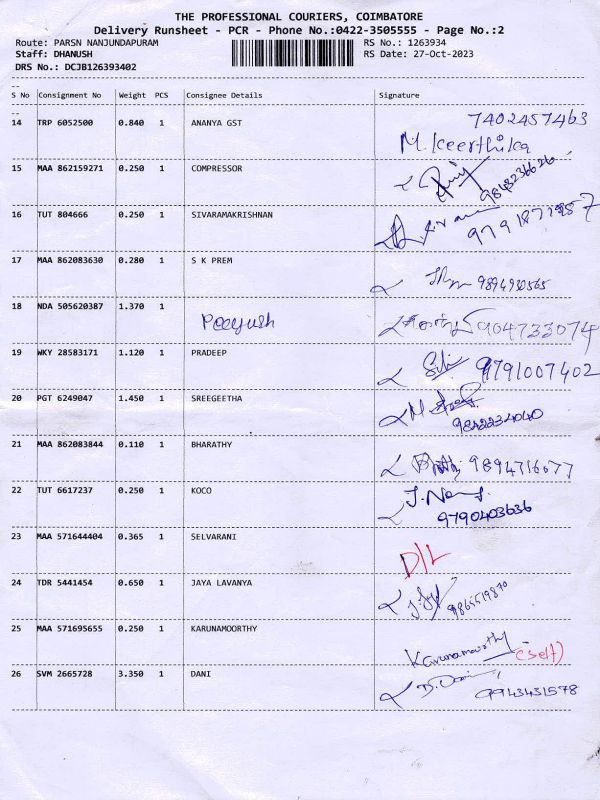 THE PROFESSIONAL COURIERS, COIMBATORE
Delivery Runsheet - PCR - Phone No.:0422-3505555 - Page No.:2
Route: PARSN NANJUNDAPURAM RS No.: 1263934
Staff: DHANUSH RS Date: 27-Oct-2023
DRS No.: DCJB126393402
--
S No Consignment No Weight PCS Consignee Details Signature
--
14 TRP 6052500 0.840 1 ANANYA GST 7402457463
M. Keerthika
15 MAA 862159271 0.250 1 COMPRESSOR 9843236626
16 TUT 804666 0.250 1 SIVARAMAKRISHNAN
17 MAA 862083630 0.280 1 S K PREM 9894930565
18 NDA 505620387 1.370 1 Peeyush 904733074
19 WKY 28583171 1.120 1 PRADEEP 9791007402
20 PGT 6249047 1.450 1 SREEGEETHA
9842234040
21 MAA 862083844 0.110 1 BHARATHY 9894716677
22 TUT 6617237 0.250 1 KOCO
9790403636
23 MAA 571644404 0.365 1 SELVARANI D/L
24 TDR 5441454 0.650 1 JAYA LAVANYA 9865519870
25 MAA 571695655 0.250 1 KARUNAMOORTHY Karunamoorthy (self)
26 SVM 2665728 3.350 1 DANI D. Dani 9943431578